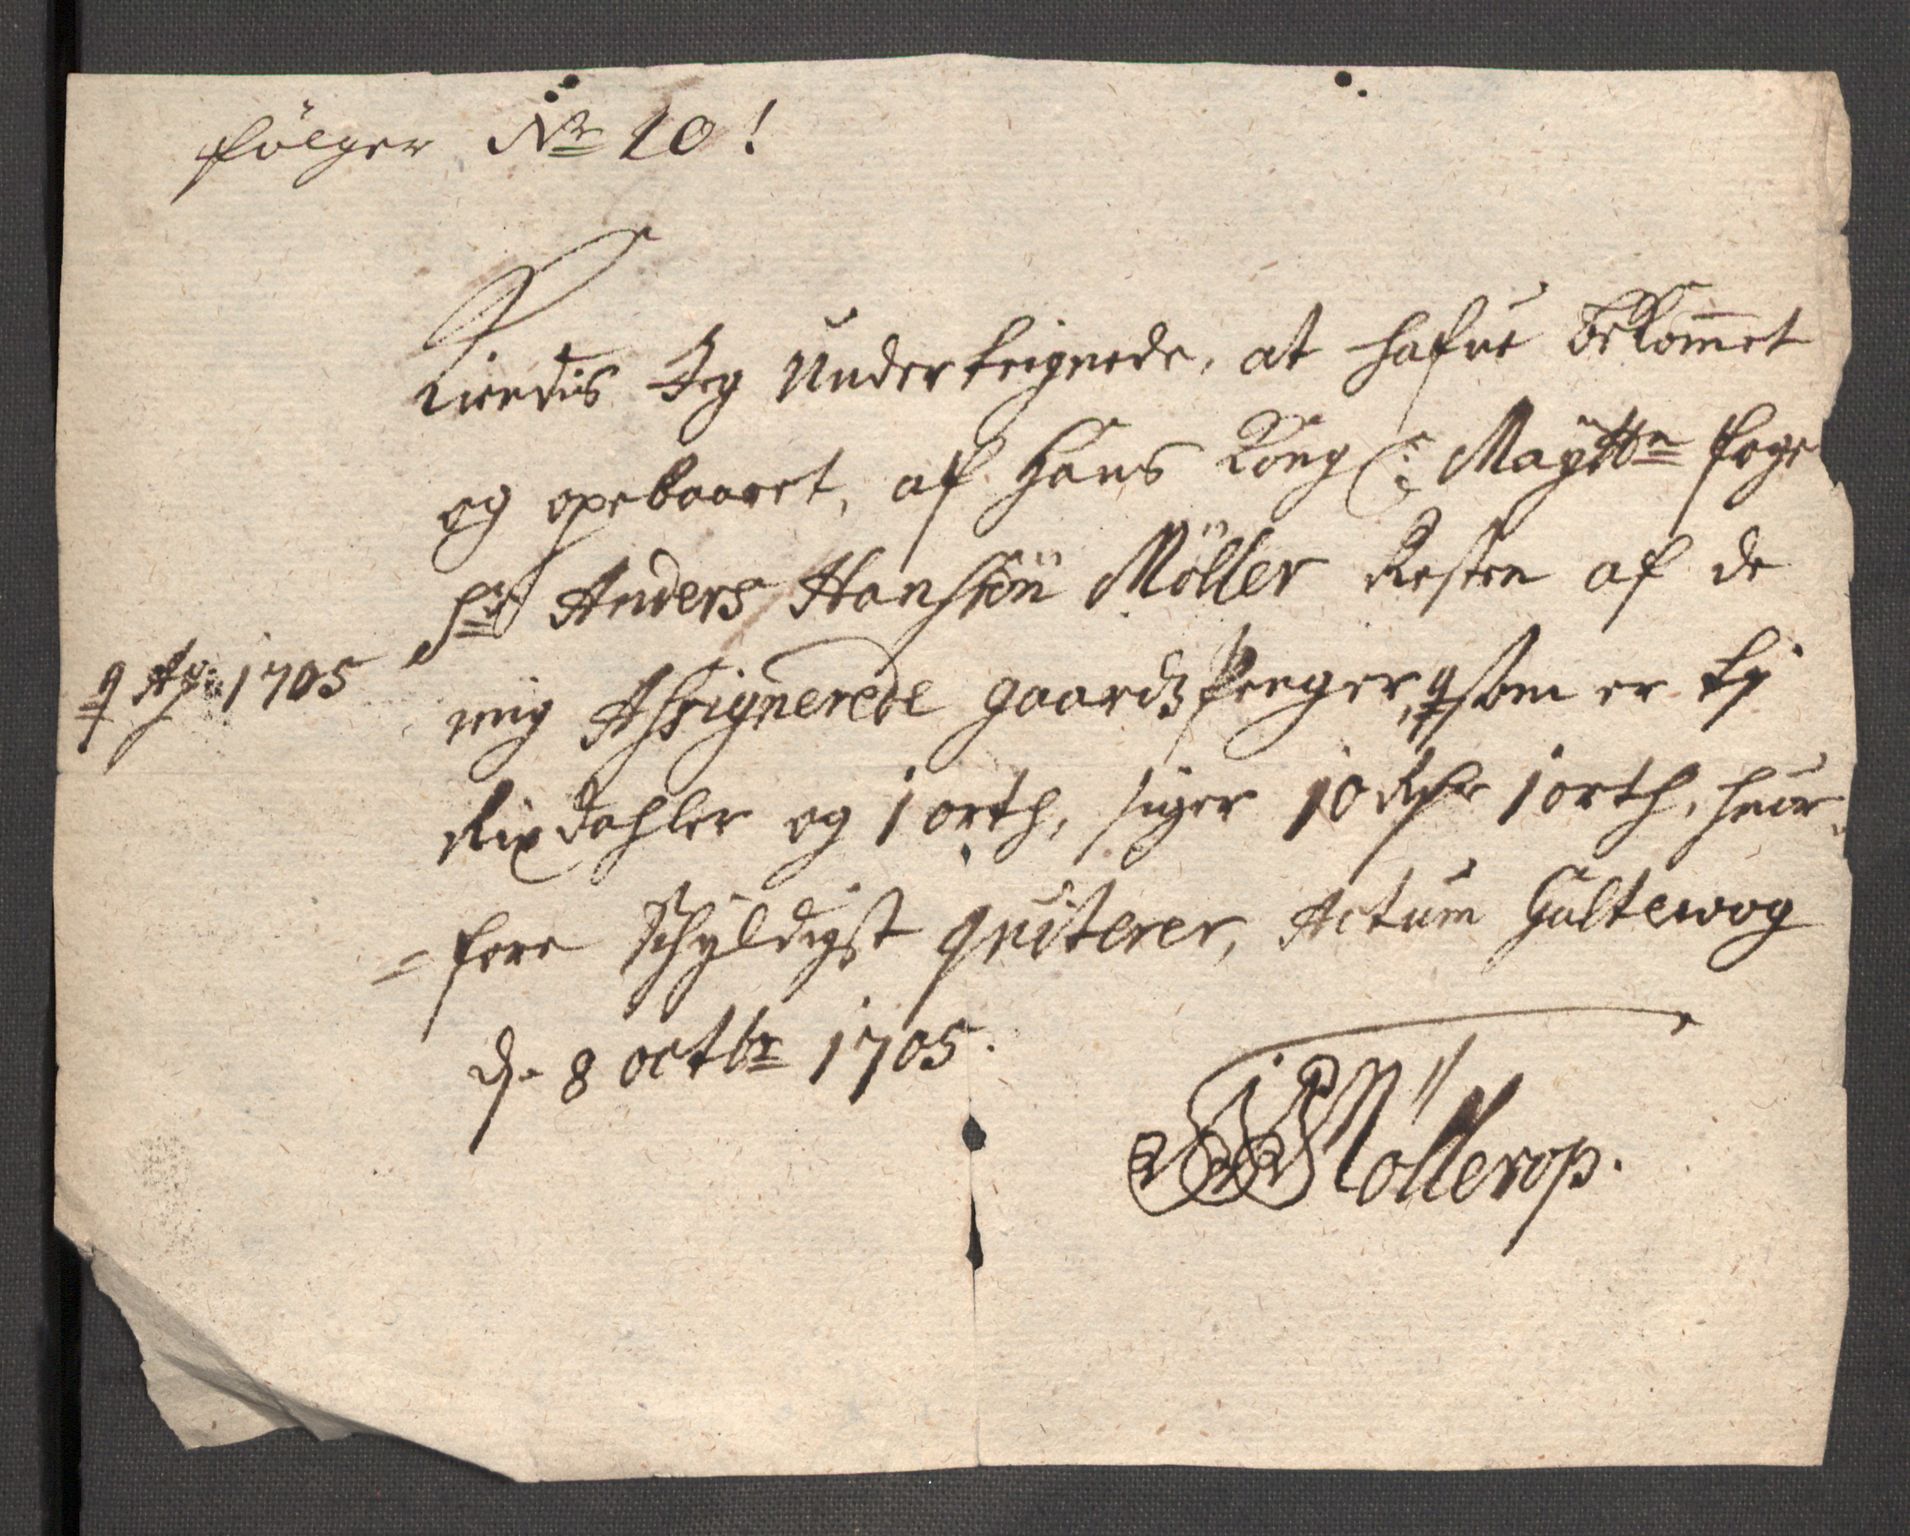 følger No 10!
Kiendis Jeg Underteignede, at hafue bekommet
og opebaaret, af Hans Kong: Maÿtts foge
Sr Anders Hanssøn Möller Resten af de
mig Assignerede gaardz penger, som er ti
Rixdahler og 1 orth, siger 10 Rdr 1 orth, huor-
=fore Schyldigst quiterer, Actum Gultewog
d. 8 octbr 1705.
Möllerop.
p Ao 1705